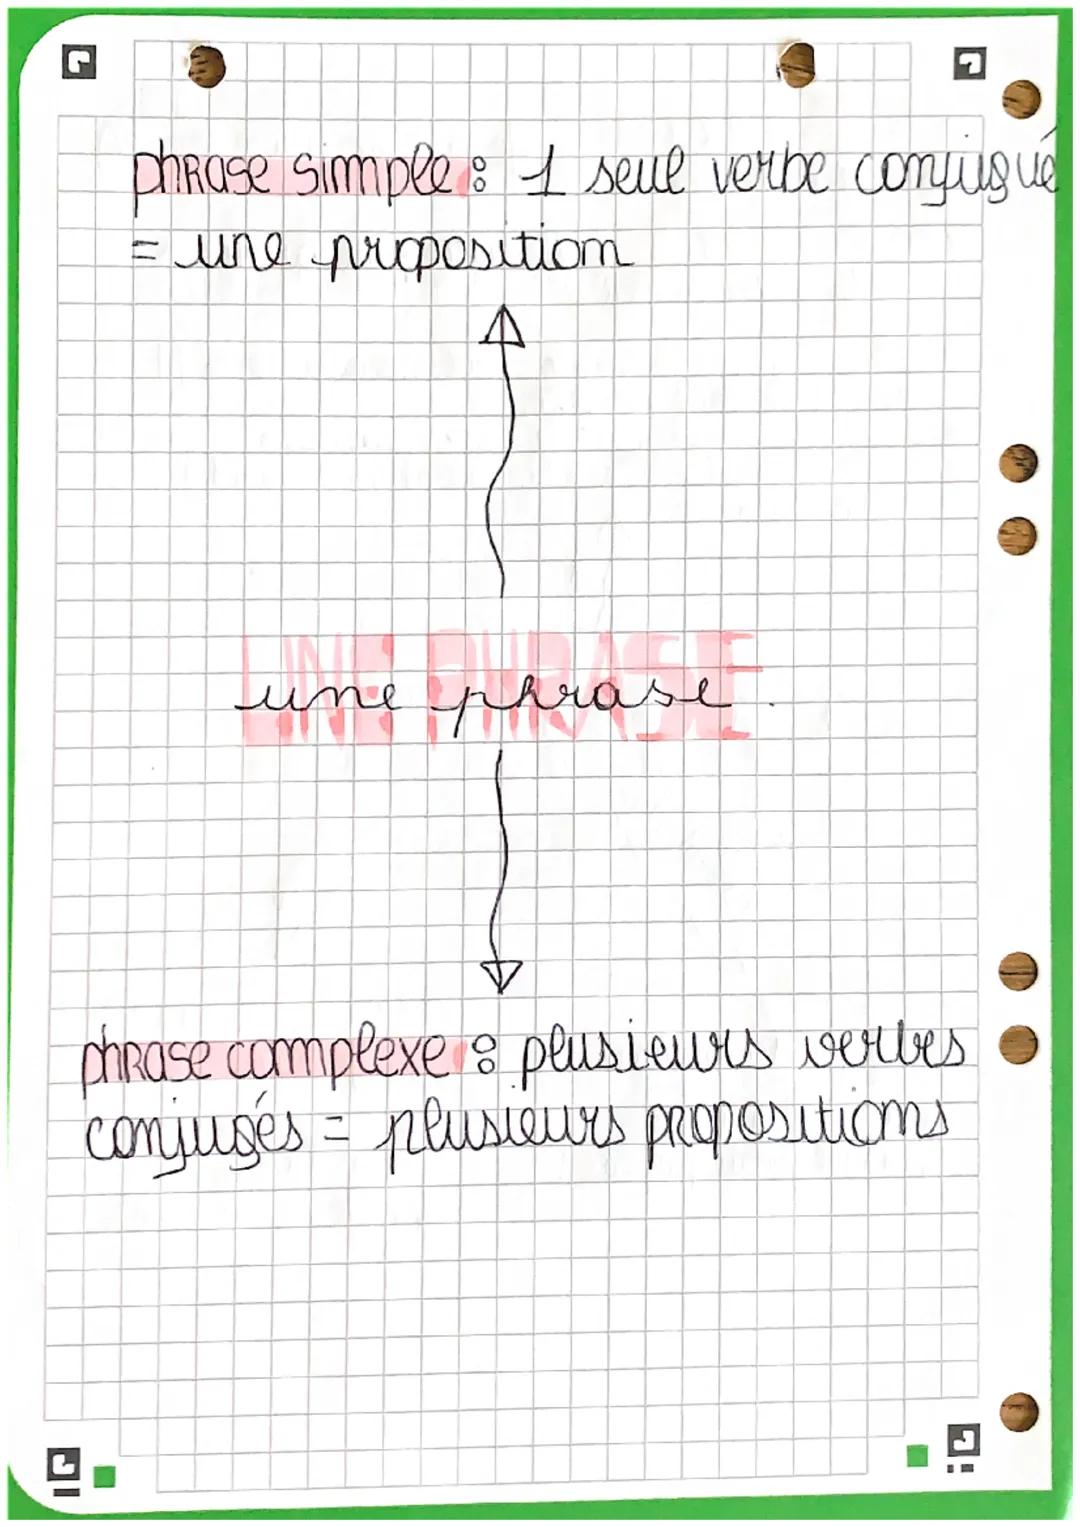 phrase simple : 1 seul verbe conjugué
= une proposition
UNE PHRASE
une phrase.
phrase complexe : plusieurs verbes
conjugués = plusieurs propositions